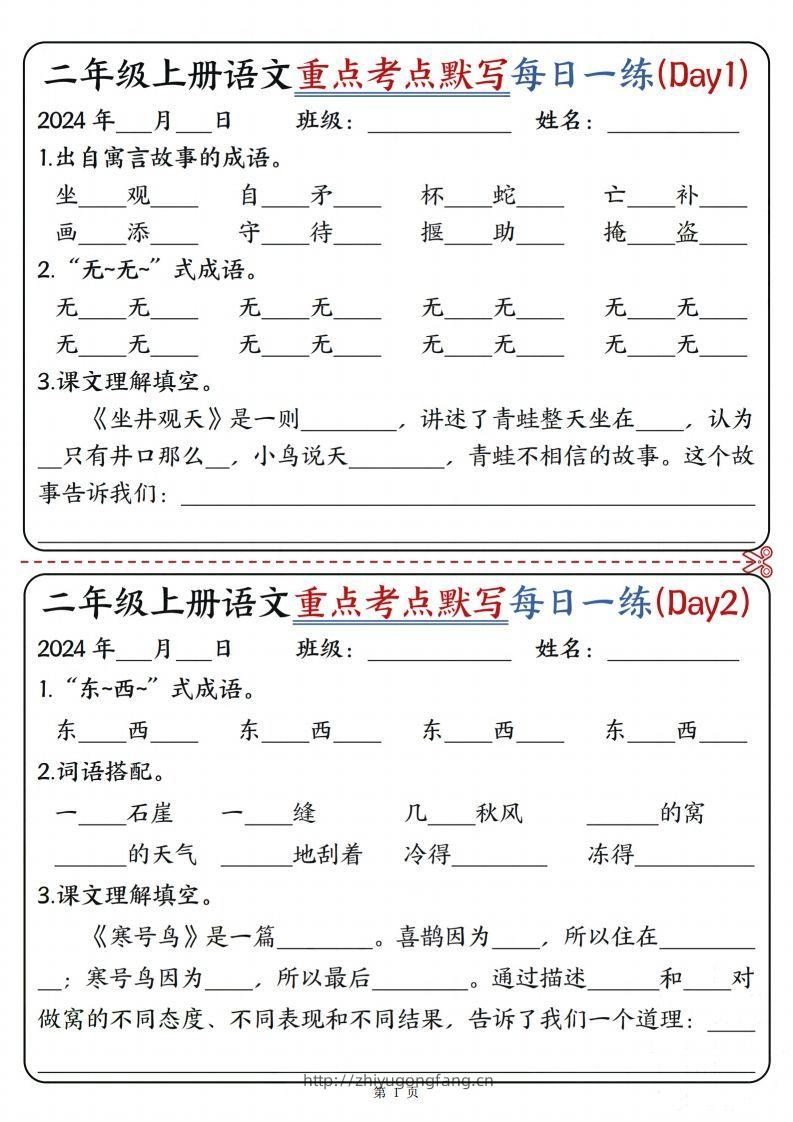 二年级上册语文重点考点默写每日一练(Day1)
2024年___月___日 班级：____________ 姓名：___________
1.出自寓言故事的成语。
坐____观____ 自____矛____ 杯____蛇____ 亡____补____
画____添____ 守____待____ 揠____助____ 掩____盗____
2.“无~无~”式成语。
无____无____ 无____无____ 无____无____ 无____无____
无____无____ 无____无____ 无____无____ 无____无____
3.课文理解填空。
《坐井观天》是一则________，讲述了青蛙整天坐在____，认为
__只有井口那么__，小鸟说天________，青蛙不相信的故事。这个故
事告诉我们：________________________________________________
____________________________________________________________
二年级上册语文重点考点默写每日一练(Day2)
2024年___月___日 班级：____________ 姓名：___________
1.“东~西~”式成语。
东____西____ 东____西____ 东____西____ 东____西____
2.词语搭配。
一____石崖 一____缝 几____秋风 ______的窝
______的天气 ______地刮着 冷得________ 冻得__________
3.课文理解填空。
《寒号鸟》是一篇________。喜鹊因为____，所以住在________
__；寒号鸟因为____，所以最后________。通过描述______和____对
做窝的不同态度、不同表现和不同结果，告诉了我们一个道理：____
____________________________________________________________
http://zhiyugongfang.cn
第 1 页